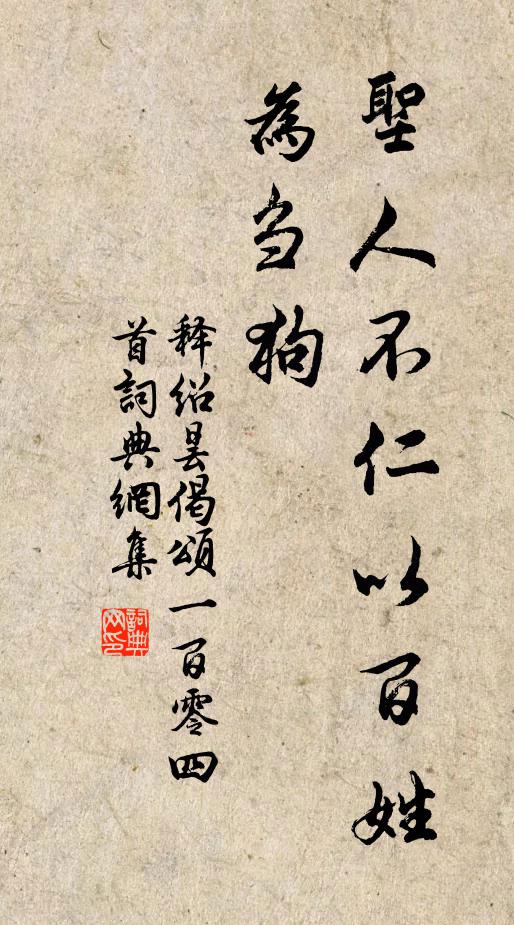 聖人不仁以百姓
為刍狗
释绍昙偈頌一百零四
首詞典網集
詞典
网印